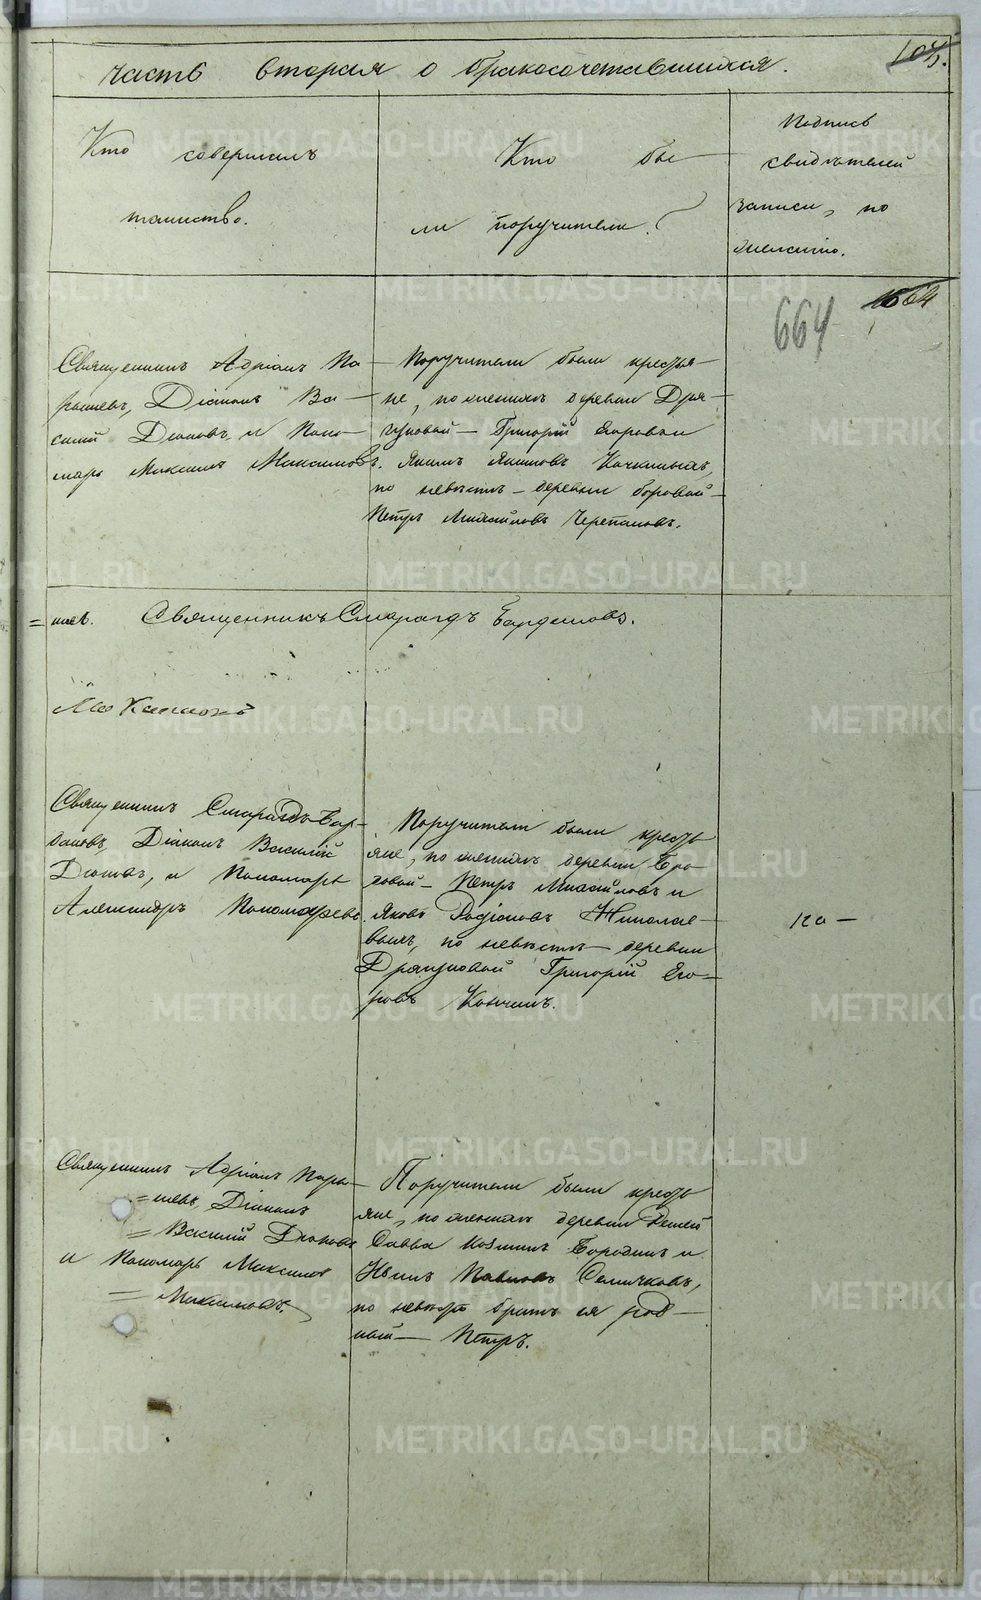 часть вторая о бракосочетавшихся.
Кто совершалъ
таинство.
Кто бы
ли поручители.
Подпись
свидѣтелей
записи, по
желанію.
664
Священникъ Адріанъ Па
рышевъ, Діаконъ Ва
силій Дюковъ и Поно
марь Максимъ Максимовъ.
Поручители были крестья
не, по женихѣ деревни Дря
гуновой — Григорій Егоровъ и
Якимъ Якимовъ
по невѣстѣ — деревни Боровой —
Петръ Михайловъ Черепановъ.
= шевъ. Священникъ Смарагдъ Бардановъ.
Священникъ Смарагдъ Бар
дановъ, Діаконъ Василій
Дюковъ, и Пономарь
Александръ Пономаревъ
Поручители были кресть
яне, по женихѣ деревни Бо
ровой — Петръ Михайловъ и
Яковъ Родіоновъ
по невѣстѣ — деревни
Дрягуновой Григорій Его
ровъ
Священникъ Адріанъ Пары
= шевъ, Діаконъ
= Василій Дюковъ
и Пономарь Максимъ
= Максимовъ.
Поручители были кресть
яне, по женихѣ деревни
Савва Козминъ Бородинъ и
Павловъ Семичковъ,
по невѣстѣ братъ ея род
ной — Петръ.
METRIKI.GASO-URAL.RU